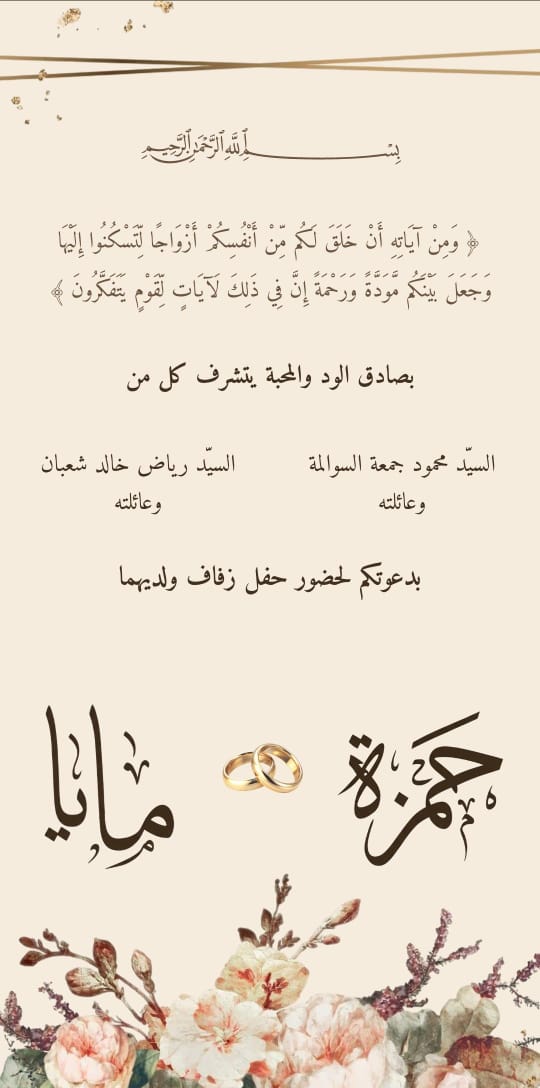 بِسْمِ اللَّهِ الرَّحْمَٰنِ الرَّحِيمِ
﴿ وَمِنْ آيَاتِهِ أَنْ خَلَقَ لَكُم مِّنْ أَنْفُسِكُمْ أَزْوَاجًا لِّتَسْكُنُوا إِلَيْهَا
وَجَعَلَ بَيْنَكُم مَّوَدَّةً وَرَحْمَةً إِنَّ فِي ذَلِكَ لَآيَاتٍ لِّقَوْمٍ يَتَفَكَّرُونَ ﴾
بصادق الود والمحبة يتشرف كل من
السيّد محمود جمعة السوالمة
وعائلته
السيّد رياض خالد شعبان
وعائلته
بدعوتكم لحضور حفل زفاف ولديهما
حمزة
مايا